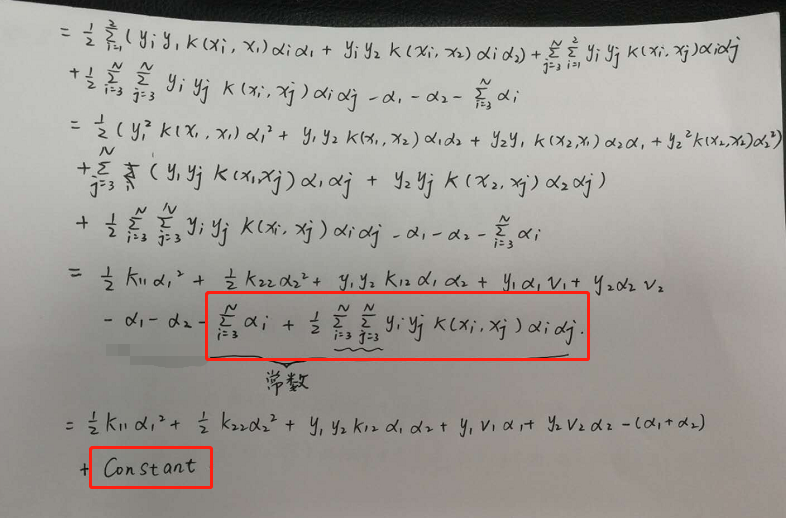 = 1/2 Σ_{i=1}^{2} (y_i y_1 K(x_i, x_1) α_i α_1 + y_i y_2 K(x_i, x_2) α_i α_2) + Σ_{j=3}^{N} Σ_{i=1}^{2} y_i y_j K(x_i, x_j) α_i α_j
+ 1/2 Σ_{i=3}^{N} Σ_{j=3}^{N} y_i y_j K(x_i, x_j) α_i α_j - α_1 - α_2 - Σ_{i=3}^{N} α_i
= 1/2 (y_1² K(x_1, x_1) α_1² + y_1 y_2 K(x_1, x_2) α_1 α_2 + y_2 y_1 K(x_2, x_1) α_2 α_1 + y_2² K(x_2, x_2) α_2²)
+ Σ_{j=3}^{N} (y_1 y_j K(x_1, x_j) α_1 α_j + y_2 y_j K(x_2, x_j) α_2 α_j)
+ 1/2 Σ_{i=3}^{N} Σ_{j=3}^{N} y_i y_j K(x_i, x_j) α_i α_j - α_1 - α_2 - Σ_{i=3}^{N} α_i
= 1/2 K_11 α_1² + 1/2 K_22 α_2² + y_1 y_2 K_12 α_1 α_2 + y_1 α_1 V_1 + y_2 α_2 V_2
- α_1 - α_2 - Σ_{i=3}^{N} α_i + 1/2 Σ_{i=3}^{N} Σ_{j=3}^{N} y_i y_j K(x_i, x_j) α_i α_j.
常数
= 1/2 K_11 α_1² + 1/2 K_22 α_2² + y_1 y_2 K_12 α_1 α_2 + y_1 V_1 α_1 + y_2 V_2 α_2 - (α_1 + α_2)
+ Constant